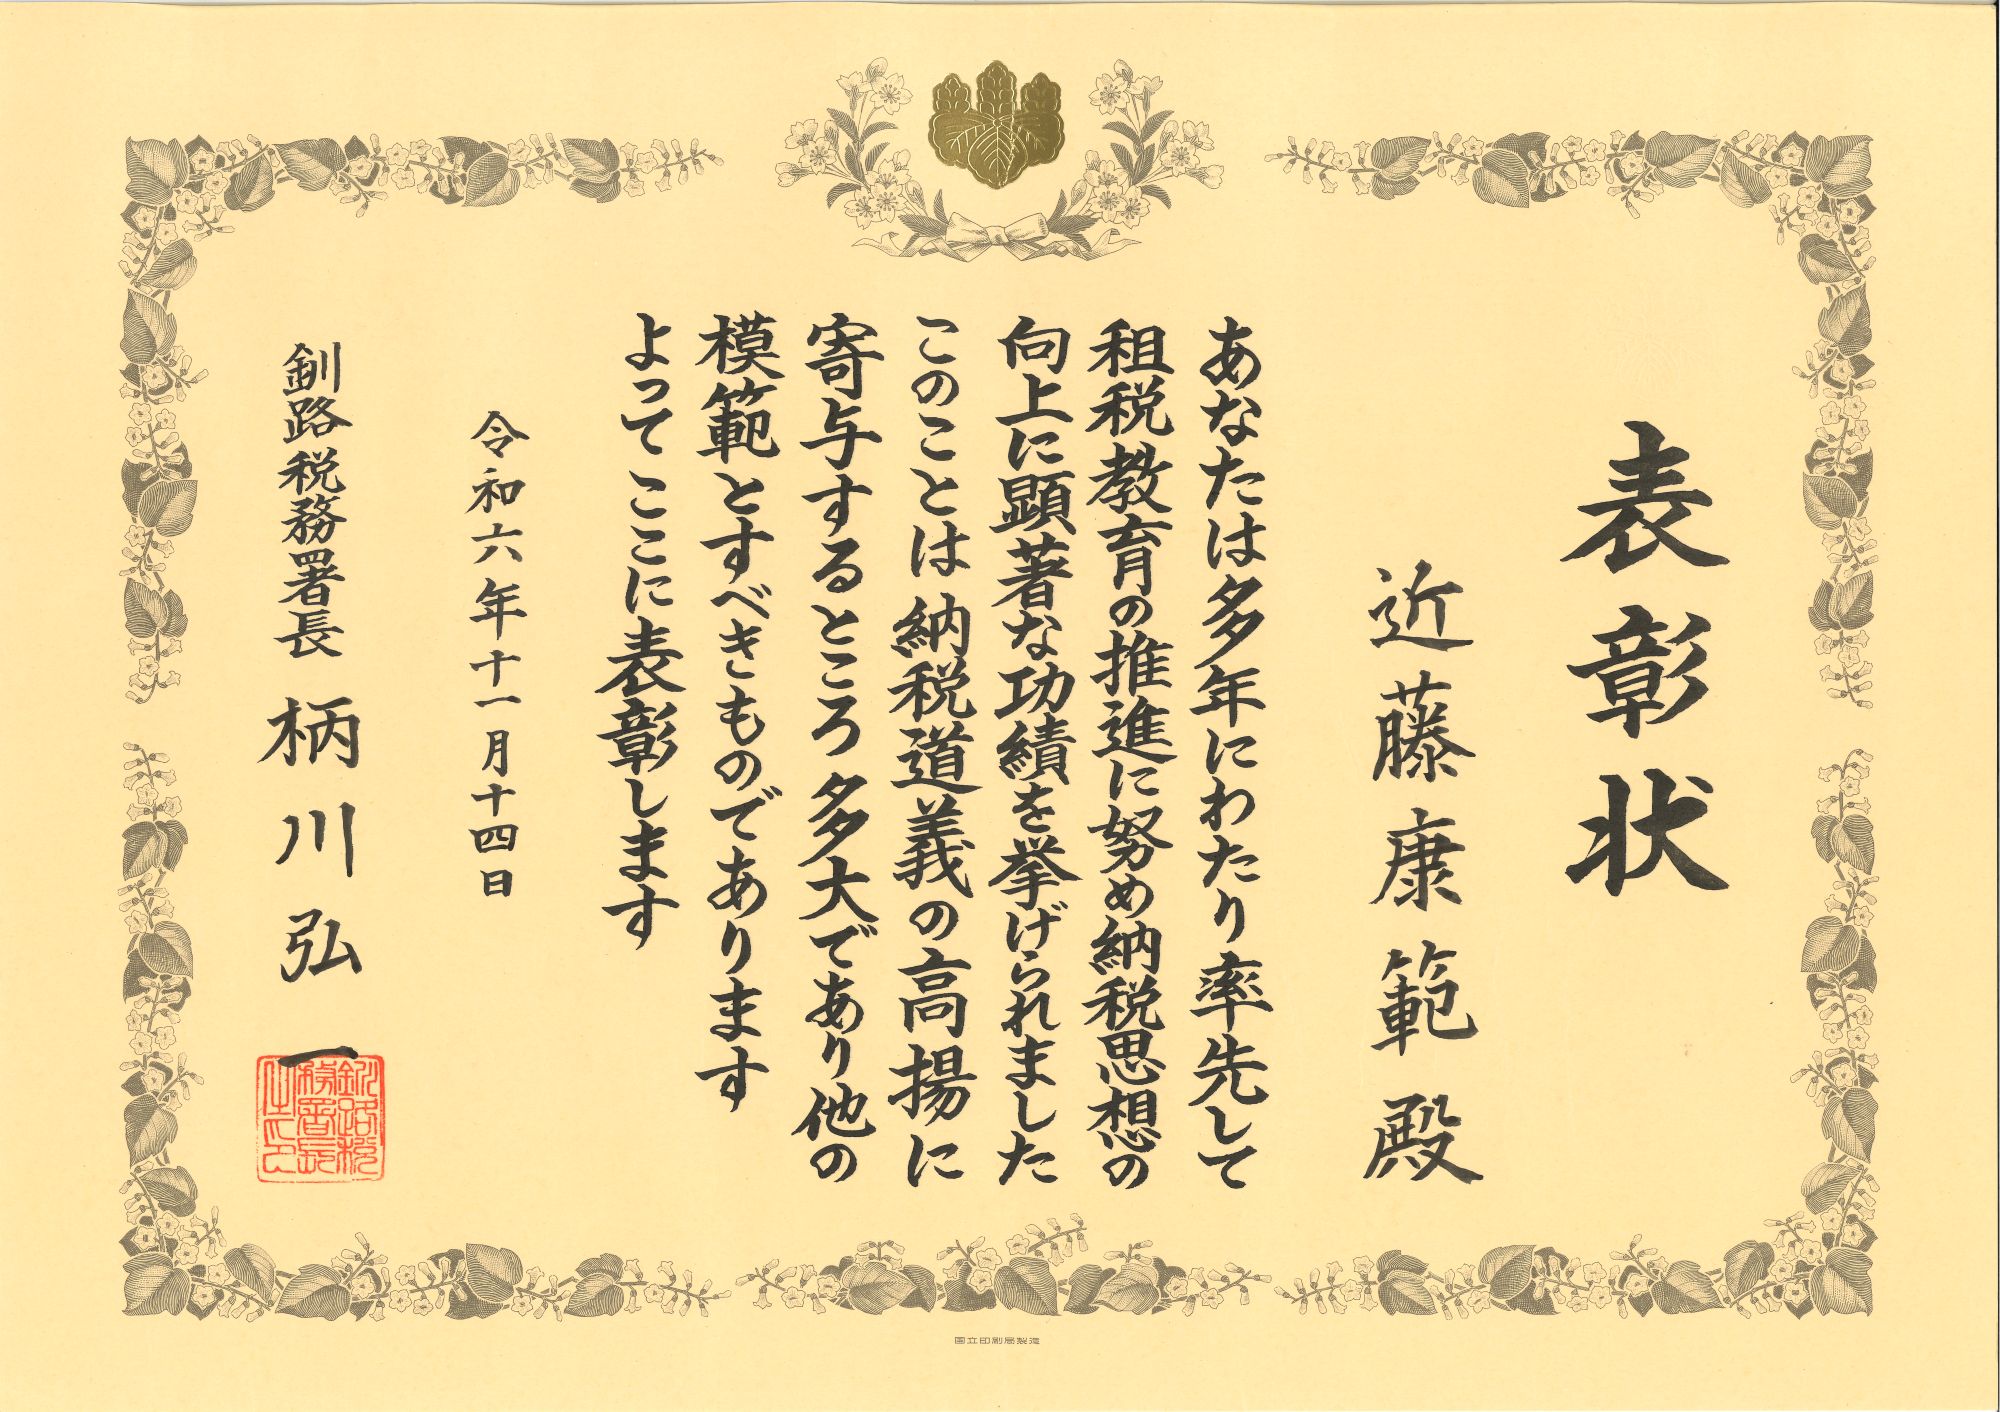 表彰状
近藤康範殿
あなたは多年にわたり率先して
租税教育の推進に努め納税思想の
向上に顕著な功績を挙げられました
このことは納税道義の高揚に
寄与するところ多大であり他の
模範とすべきものであります
よってここに表彰します
令和六年十一月十四日
釧路税務署長 柄川弘一
釧路税
務署長
之印
国立印刷局製造